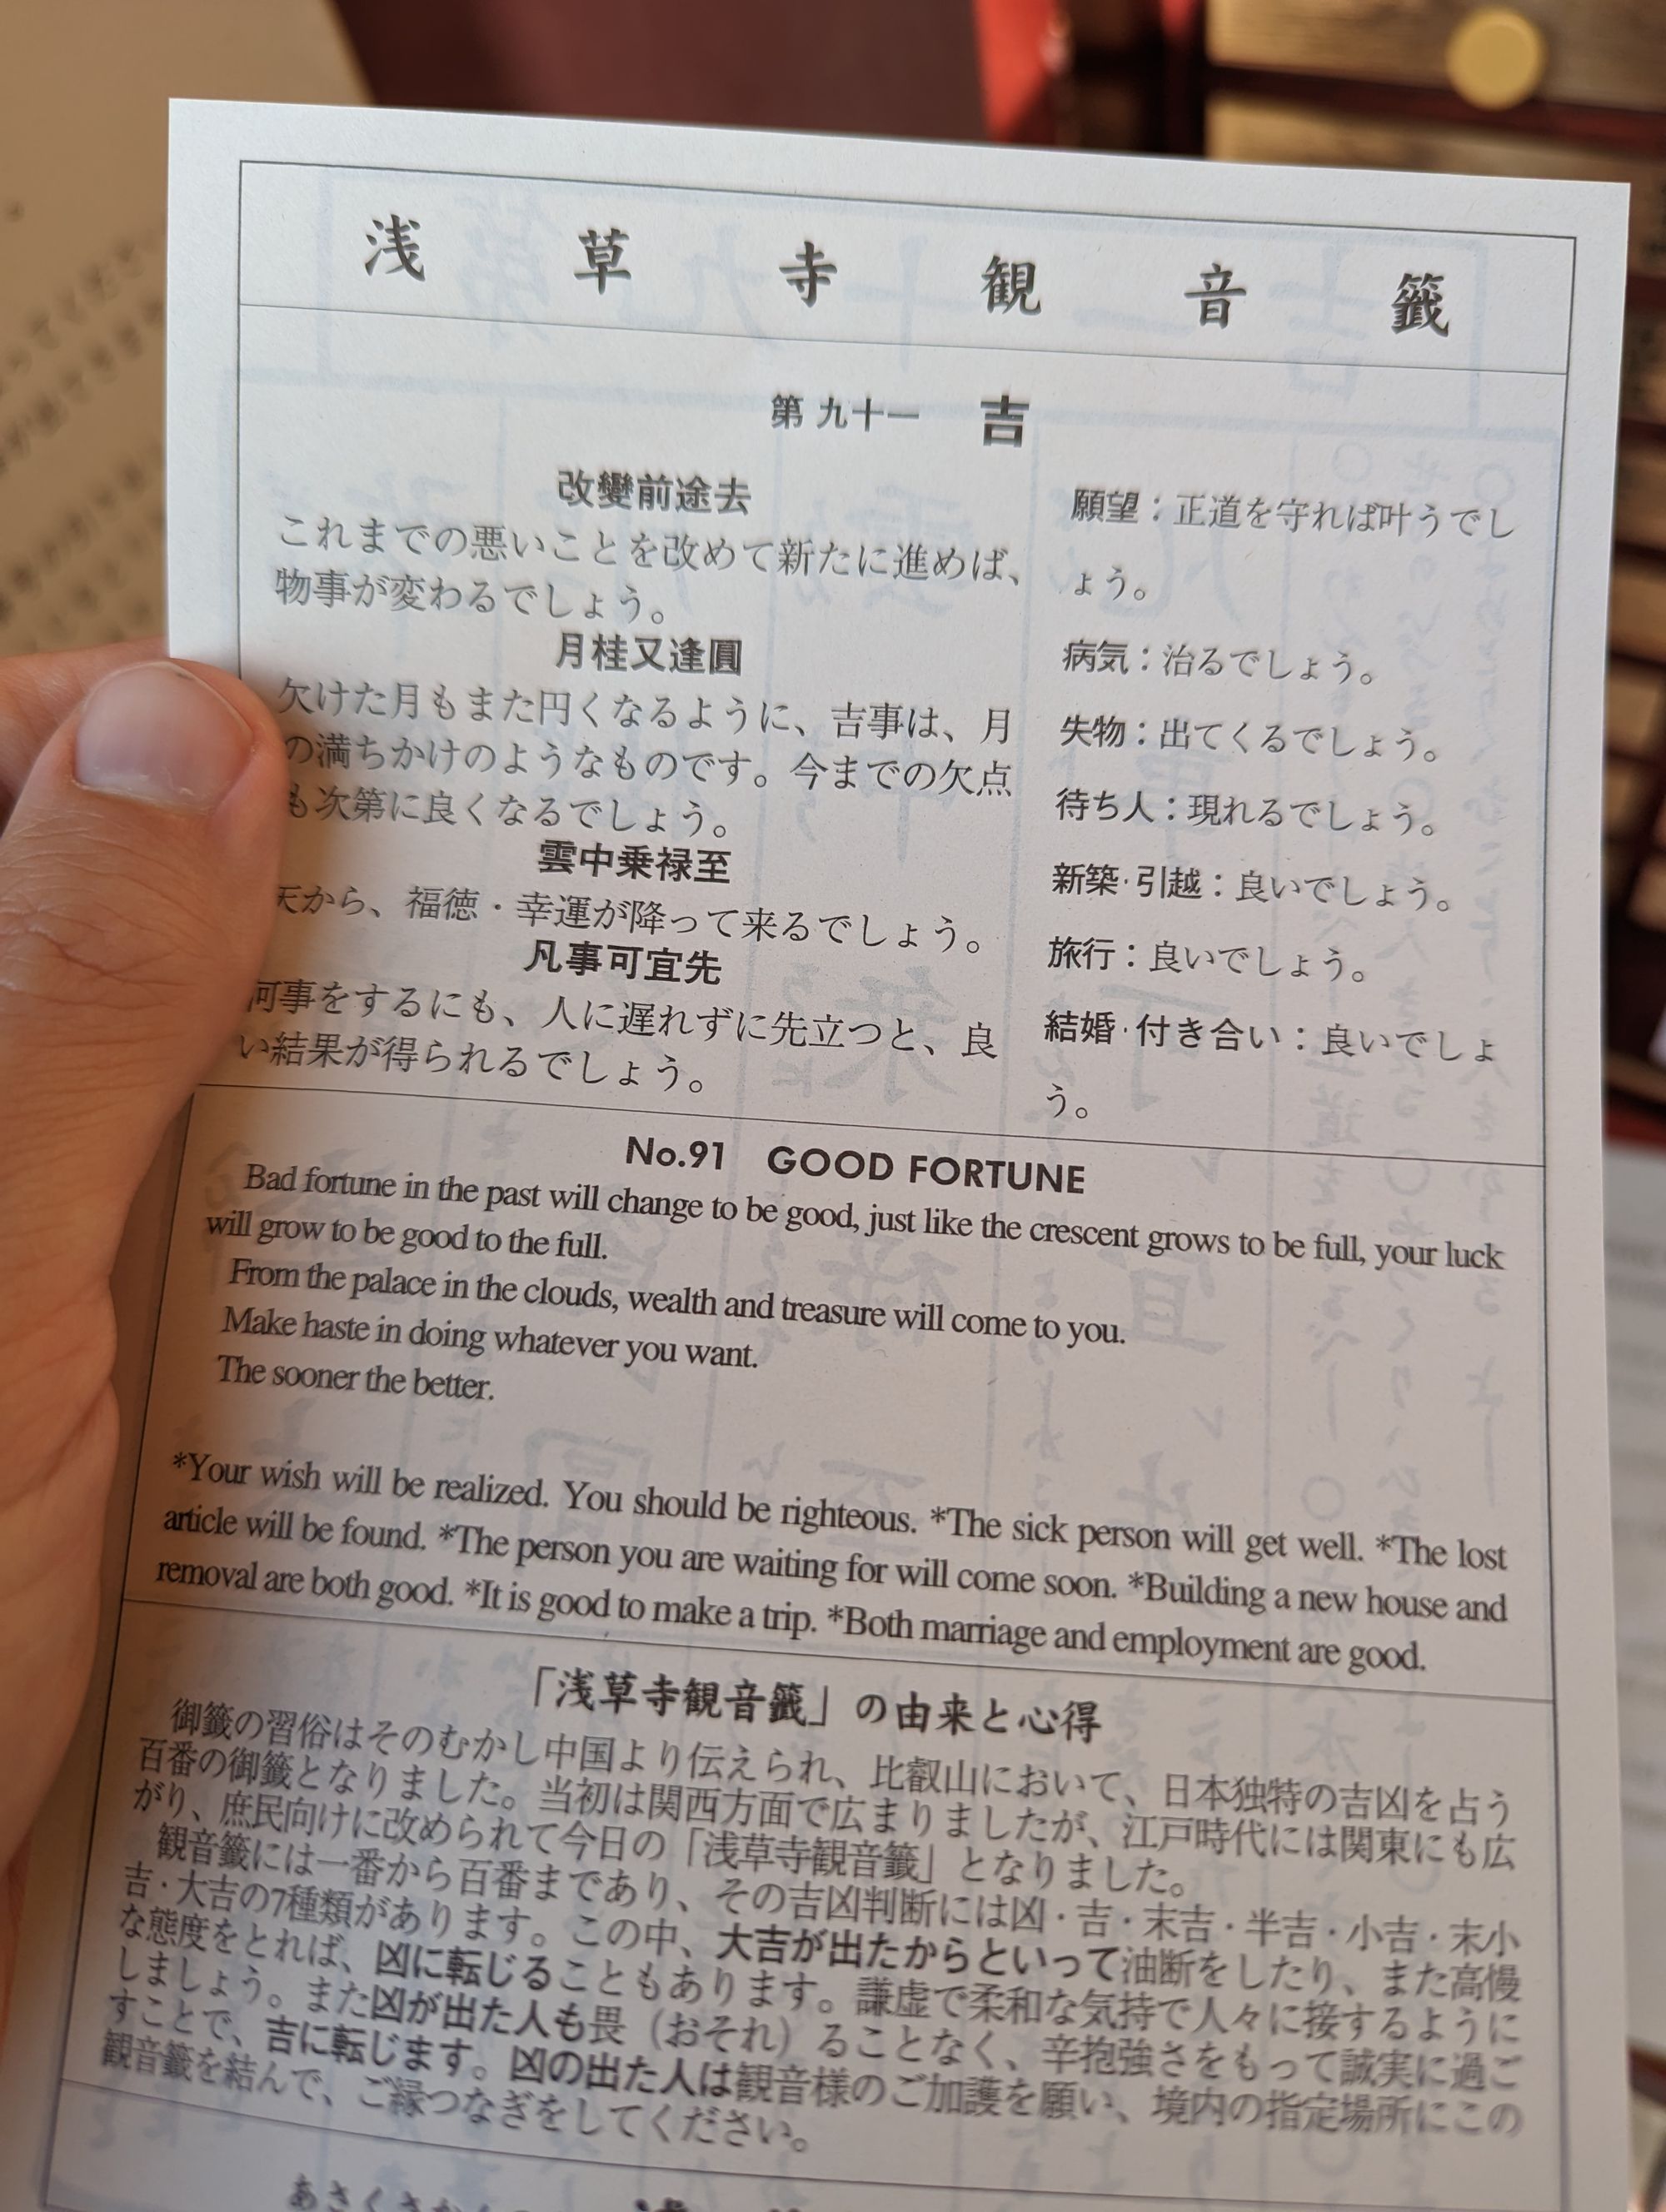 浅草寺観音籤
第九十一 吉
改變前途去
これまでの悪いことを改めて新たに進めば、
物事が変わるでしょう。
月桂又逢圓
欠けた月もまた円くなるように、吉事は、月
の満ちかけのようなものです。今までの欠点
も次第に良くなるでしょう。
雲中乗禄至
天から、福徳・幸運が降って来るでしょう。
凡事可宜先
何事をするにも、人に遅れずに先立つと、良
い結果が得られるでしょう。
願望：正道を守れば叶うでし
ょう。
病気：治るでしょう。
失物：出てくるでしょう。
待ち人：現れるでしょう。
新築·引越：良いでしょう。
旅行：良いでしょう。
結婚·付き合い：良いでしょ
う。
No.91 GOOD FORTUNE
Bad fortune in the past will change to be good, just like the crescent grows to be full, your luck
will grow to be good to the full.
From the palace in the clouds, wealth and treasure will come to you.
Make haste in doing whatever you want.
The sooner the better.
*Your wish will be realized. You should be righteous. *The sick person will get well. *The lost
article will be found. *The person you are waiting for will come soon. *Building a new house and
removal are both good. *It is good to make a trip. *Both marriage and employment are good.
「浅草寺観音籤」の由来と心得
御籤の習俗はそのむかし中国より伝えられ、比叡山において、日本独特の吉凶を占う
百番の御籤となりました。当初は関西方面で広まりましたが、江戸時代には関東にも広
がり、庶民向けに改められて今日の「浅草寺観音籤」となりました。
観音籤には一番から百番まであり、その吉凶判断には凶・吉・末吉・半吉・小吉・末小
吉・大吉の7種類があります。この中、大吉が出たからといって油断をしたり、また高慢
な態度をとれば、凶に転じることもあります。謙虚で柔和な気持で人々に接するように
しましょう。また凶が出た人も畏（おそれ）ることなく、辛抱強さをもって誠実に過ご
すことで、吉に転じます。凶の出た人は観音様のご加護を願い、境内の指定場所にこの
観音籤を結んで、ご縁つなぎをしてください。